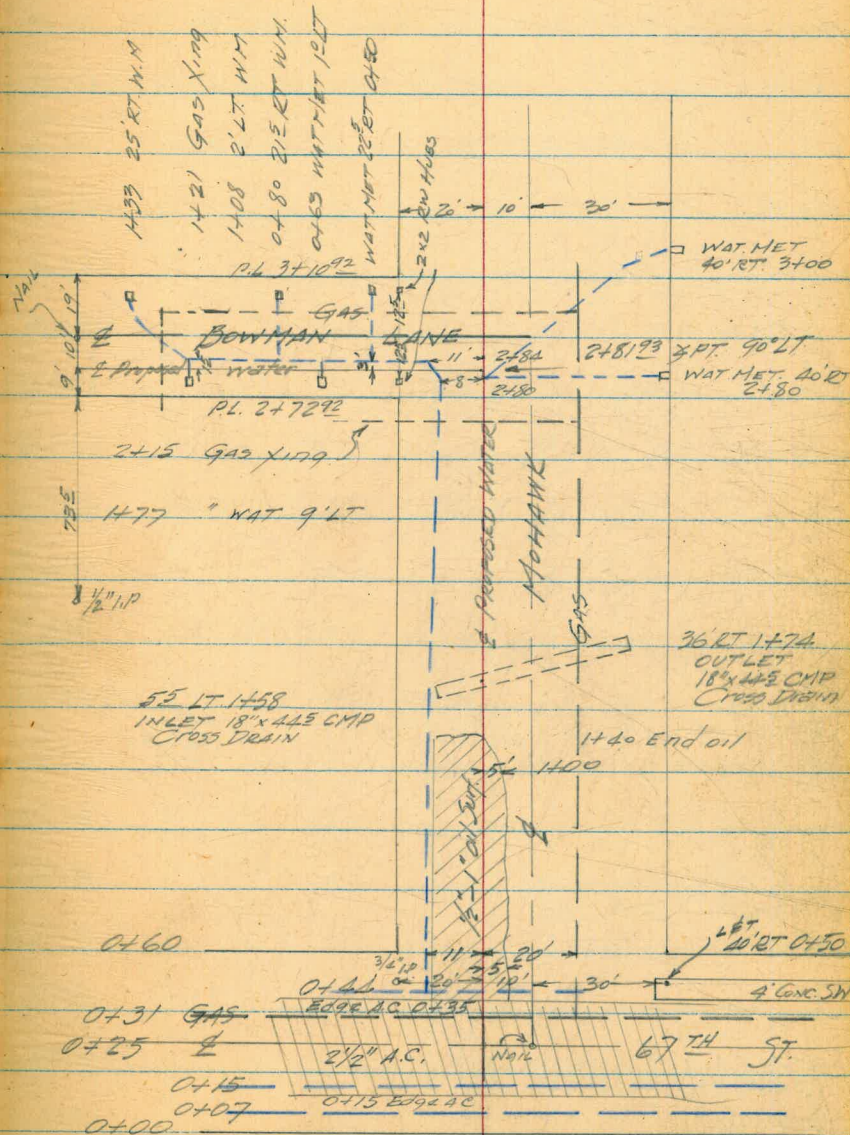 1+33 25' RT. W.M
1+21 GAS Xing
1+08 2' LT. WM
0+80 21⁵ RT WM.
0+63 WAT MET 1⁰ LT
WAT MET 22⁵ RT 0+50
2x2 R/W HUBS
20' 10' 30'
WAT. MET
40' RT. 3+00
P.L. 3+10⁹²
NAIL
19'
10'
9'
GAS
12⁵
℄ BOWMAN LANE
℄ Proposed Water
3'
11' 2+84
2+81⁹³ ∡ PT. 90° LT
8 2+80
WAT MET. 40' RT
2+80
P.L. 2+72⁹²
2+15 GAS Xing
1+77 " WAT 9' LT
73⁵
1/2" I.P
℄ PROPOSED WATER
MOHAWK
GAS
36' RT 1+74
OUTLET
18" x 44⁵ CMP
Cross Drain
5⁵ LT 1+58
INLET 18" x 44⁵ CMP
CROSS DRAIN
1+40 End oil
5' 1+00
1/2"-1" Oil Surf.
℄
0+60
11' 20'
LET
40' RT 0+50
3/4" I.P
5'
0+44 20' 10' 30'
4' CONC. SW
Edge AC 0+35
0+31 GAS
0+25 ℄ 2 1/2" A.C. NAIL 67TH ST.
0+15
0+15 Edge AC
0+07
0+00